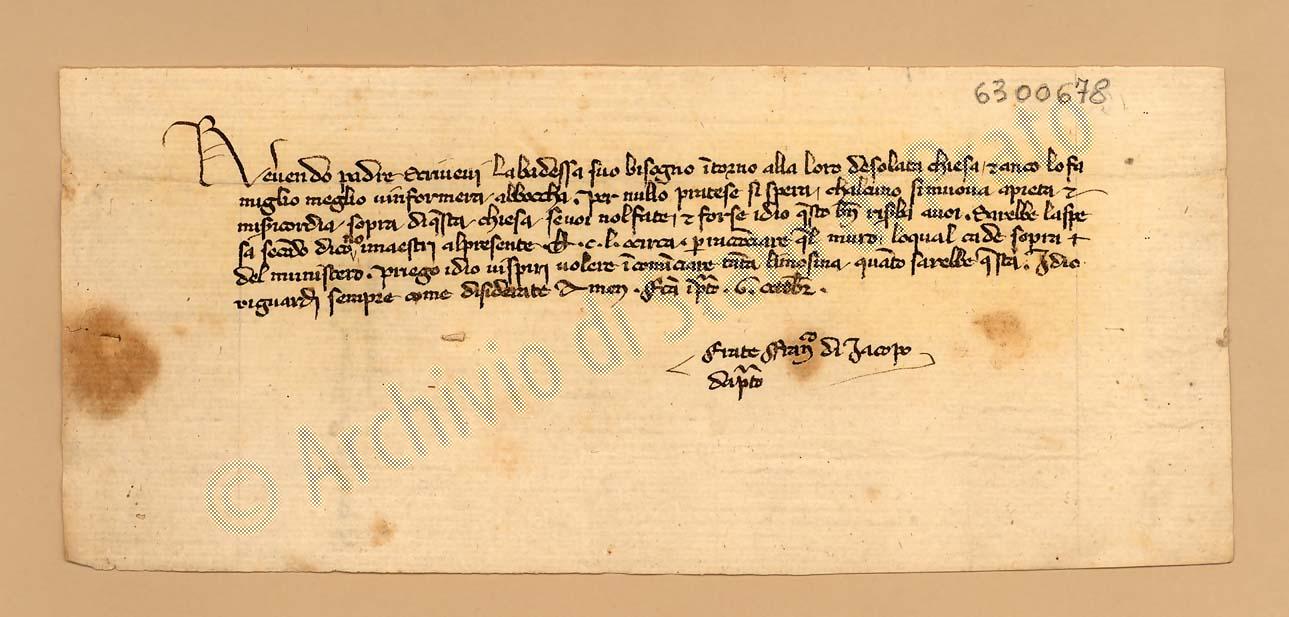 6300678
Reverendo padre Scrivevi Labadessa suo bisegno ītorno alla loro desolata chiesa ⁊ anco lo fa
miglio meglio vinformera abboccha. Per nullo pratese si spera, chalcuno si muova apieta ⁊
misericordia, sopra diq̄sta chiesa, sevoi nol fate, ⁊ forse idio q̄sto bn̄ a voi. Sarebbe la spe
sa secōdo dicono i maestri alpresente. . c. l. o circa, p q̄l muro, loqual cade sopra
del munistero. Priego idio vispiri volere īcomīciare tāta limosina, quāto sarebbe q̄sta. Idio
riguardi sempre come disiderate Amen. Fca ī p̄to. 6.
Frate di Jacopo
da p̄to
© Archivio di Stato di Prato